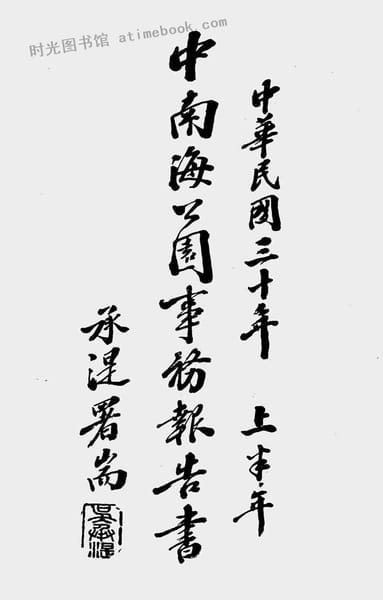 时光图书馆 atimebook.com
中華民國三十年 上半年
中南海公園事務報告書
承湜署耑
吳承湜